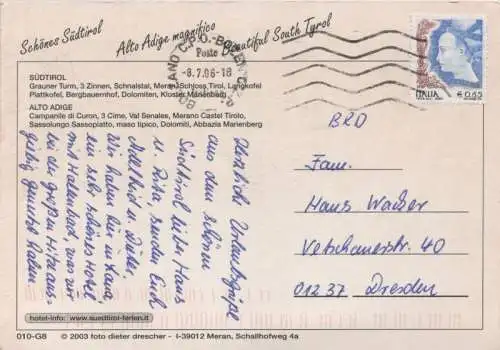 Schönes Südtirol
Alto Adige magnifico
Beautiful South Tyrol
SÜDTIROL
Grauner Turm, 3 Zinnen, Schnalstal, Meran Schloss Tirol, Langkofel
Plattkofel, Bergbauernhof, Dolomiten, Kloster Marienberg
ALTO ADIGE
Campanile di Curon, 3 Cime, Val Senales, Merano Castel Tirolo,
Sassolungo Sassopiatto, maso tipico, Dolomiti, Abbazia Marienberg
Poste
-8.7.06-18
ITALIA
€ 0,65
Herzliche Urlaubsgrüße
aus dem schönen
Südtirol lieber Hans
u. Rita, senden Euch
u. Dieter.
Wir haben hier in
ein sehr schönes Hotel
mit Hallenbad, was wir
bei der großen Hitze aus-
giebig genutzt haben.
BRD
Fam.
Hans Wacker
Vetschauerstr. 40
01237 Dresden
hotel-info: www.suedtirol-ferien.it
010-G8 © 2003 foto dieter drescher - I-39012 Meran, Schallhofweg 4a